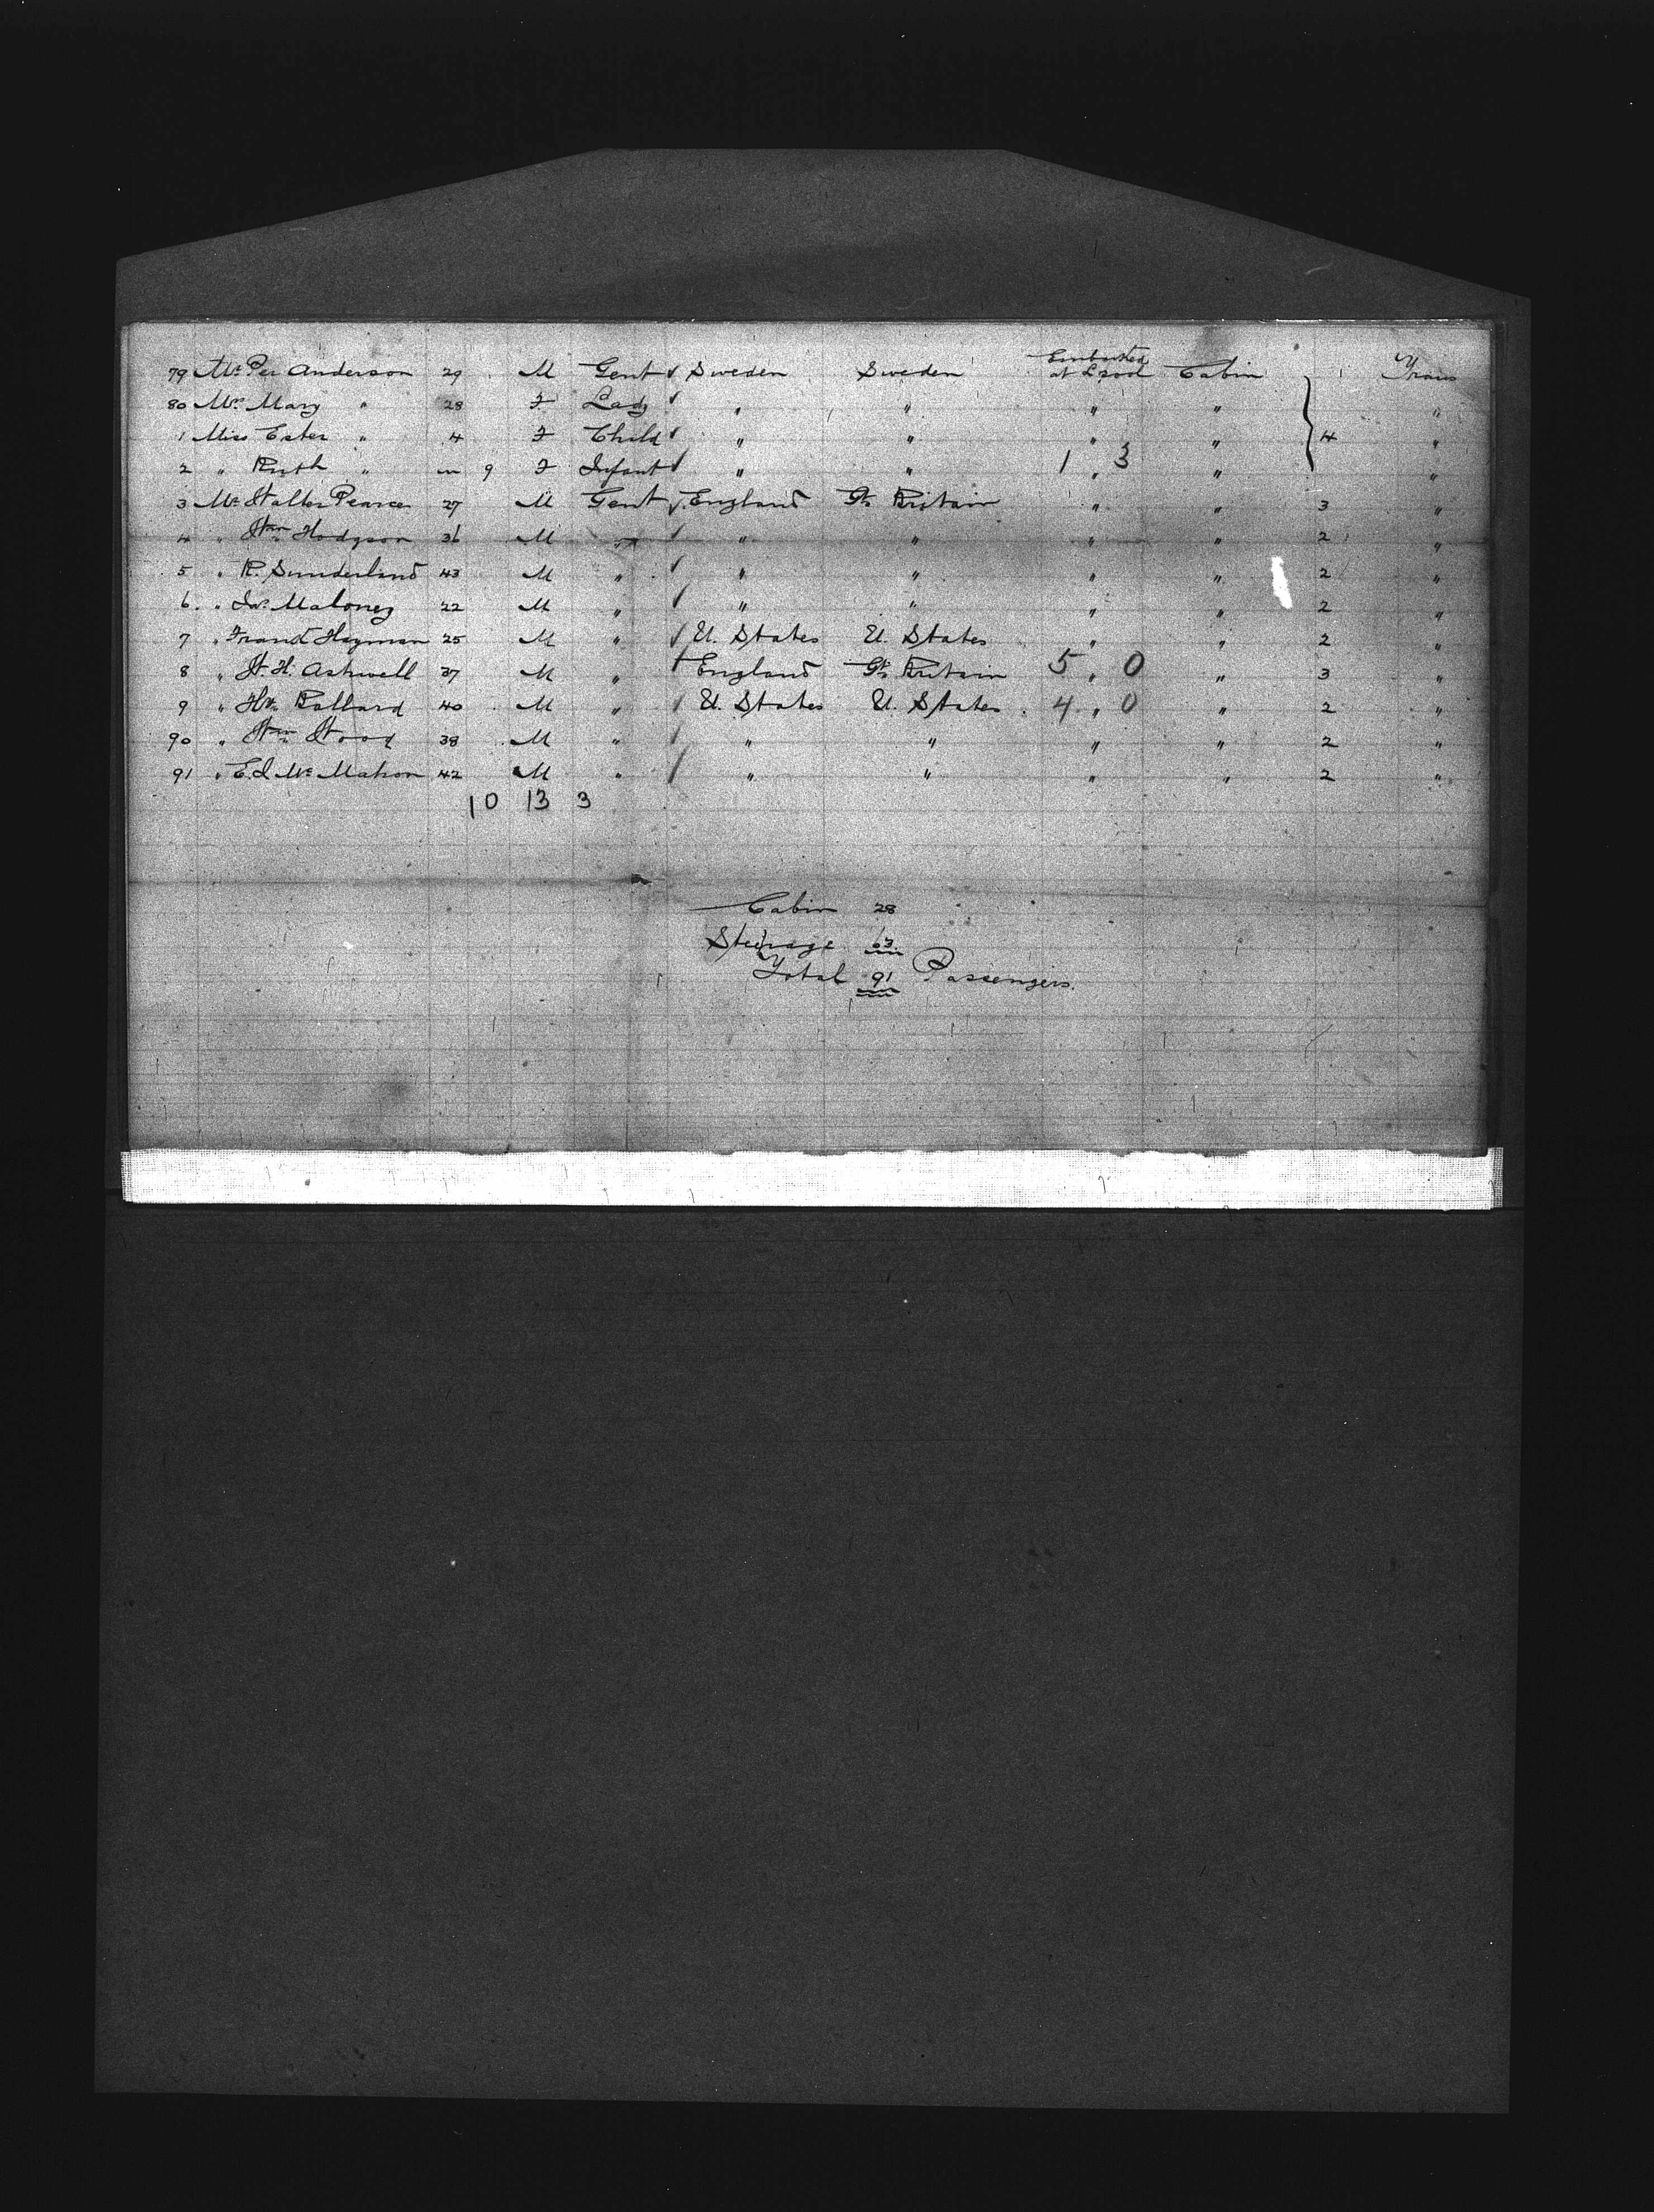 79 Mr Per Anderson 29 M Gent ✓ Sweden Sweden Embarked at Lpool Cabin 1 Trans
80 Mrs Mary " 28 F Lady ✓ " " " " "
1 Miss Ester " 4 F Child ✓ " " " " 4 "
2 " Ruth " 9 F Infant ✓ " " 1 " 3 " "
3 Mr Walter Pearce 27 M Gent ✓ England Gt Britain " " 3 "
4 " Wm Hodgson 36 M " ✓ " " " " 2 "
5 " R. Sunderland 43 M " ✓ " " " " 2 "
6 " Jno Maloney 22 M " ✓ " " " " 2 "
7 " Hayman 25 M " ✓ U. States U. States " " 2 "
8 " W. H. Ashwell 37 M " ✓ England Gt Britain 5 " 0 " 3 "
9 " Hy Ballard 40 M " ✓ U. States U. States 4 " 0 " 2 "
90 " Wm Wood 38 M " ✓ " " " " 2 "
91 " E. J. McMahon 42 M " ✓ " " " " 2 "
10 13 3
Cabin 28
Steerage 63
Total 91 Passengers.